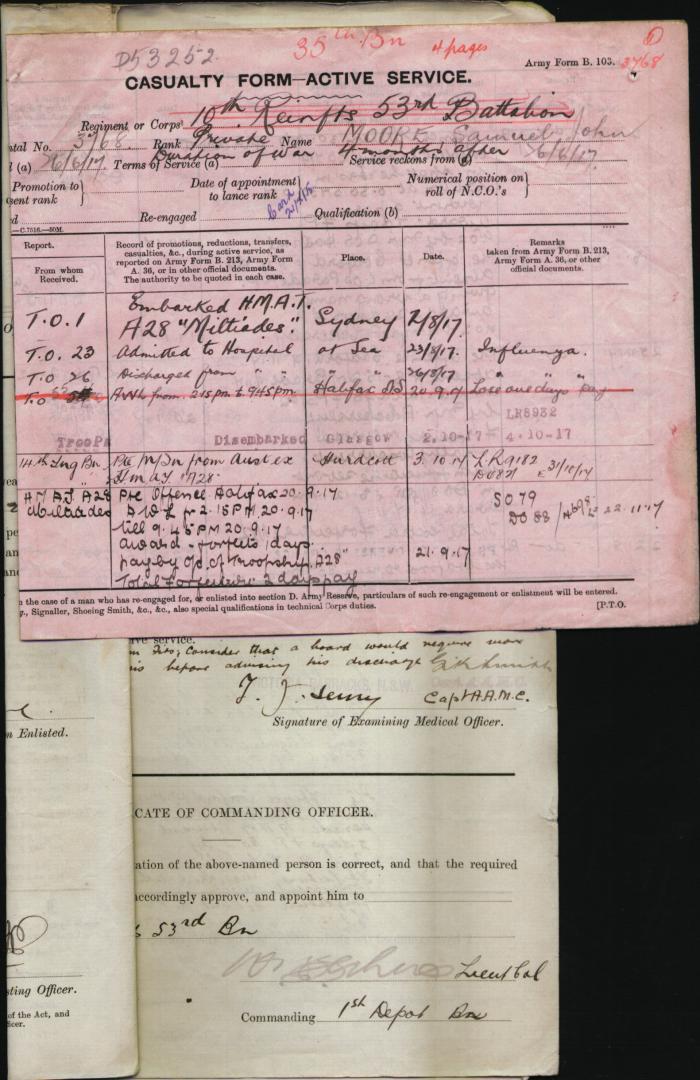 D53252.
35th Bn
4 pages
1
Army Form B. 103.
3768
CASUALTY FORM—ACTIVE SERVICE.
Regiment or Corps 10th Reinfts 53rd Battalion
ntal No. 3768. Rank Private Name MOORE Samuel John
l (a) 26/6/17 Terms of Service (a) Duration of War 4 months after Service reckons from (a) 26/6/17.
Promotion to
sent rank
Date of appointment
to lance rank
Numerical position on
roll of N.C.O.'s
Re-engaged
Qualification (b)
—C.7516.—50M.
Report.
From whom
Received.
Record of promotions, reductions, transfers,
casualties, &c., during active service, as
reported on Army Form B. 213, Army Form
A. 36, or in other official documents.
The authority to be quoted in each case.
Place.
Date.
Remarks
taken from Army Form B. 213,
Army Form A. 36, or other
official documents.
T.O. 1 Embarked H.M.A.T. A28 "Miltiades". Sydney 2/8/17
T.O. 23 Admitted to Hospital at Sea 23/8/17. Influenza.
T.O. 26 Discharged from " " " " 26/8/17 "
T.O AWL from 2.15pm to 9.45pm Halifax N.S. 20.9.17 Lose one days pay
LR8932
Troops Disembarked Glasgow 2.10.17 4.10.17
14th Tng Bn Pte M/In from Aust ex Hurdcott 3.10.17 L.R9182
" H.m.a.T. A28. DO821 E 31/10/17
H.M.A.T. A28 Pte Offence Halifax 20.9.17
Miltiades A.W.L fr 2.15PM 20.9.17
till 9.45PM 20.9.17
Award - forfeits 1 days
pay by O/C of Troopship A28" 21.9.17
Total Forfeiture 2 days pay
SO79
DO 88 / 22.11.17
n the case of a man who has re-engaged for, or enlisted into section D. Army Reserve, particulars of such re-engagement or enlistment will be entered.
., Signaller, Shoeing Smith, &c., &c., also special qualifications in technical Corps duties.
[P.T.O.
ve service.
Consider that a board would require more
his before advising his discharge
Capt A.A.M.C.
Signature of Examining Medical Officer.
n Enlisted.
CATE OF COMMANDING OFFICER.
ation of the above-named person is correct, and that the required
accordingly approve, and appoint him to
53rd Bn
Lieut Col
Commanding 1st Depot Bn
sting Officer.
of the Act, and
ficer.